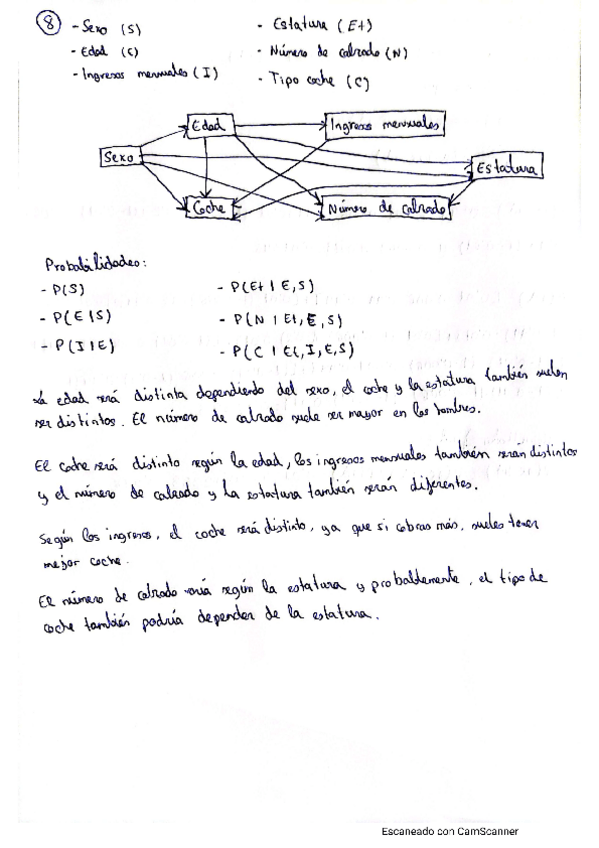 ⑧ - Sexo (S)
- Edad (E)
- Ingresos mensuales (I)
- Estatura (Et)
- Número de calzado (N)
- Tipo coche (C)
Edad
Ingresos mensuales
Sexo
Estatura
Coche
Número de calzado
Probabilidades:
- P(S)
- P(E|S)
- P(I|E)
- P(Et|E,S)
- P(N|Et,E,S)
- P(C|Et,I,E,S)
La edad será distinta dependiendo del sexo, el coche y la estatura también suelen
ser distintos. El número de calzado suele ser mayor en los hombres.
El coche será distinto según la edad, los ingresos mensuales también serán distintos
y el número de calzado y la estatura también serán diferentes.
Según los ingresos, el coche será distinto, ya que si cobras más, sueles tener
mejor coche.
El número de calzado varía según la estatura y probablemente, el tipo de
coche también podría depender de la estatura.
Escaneado con CamScanner